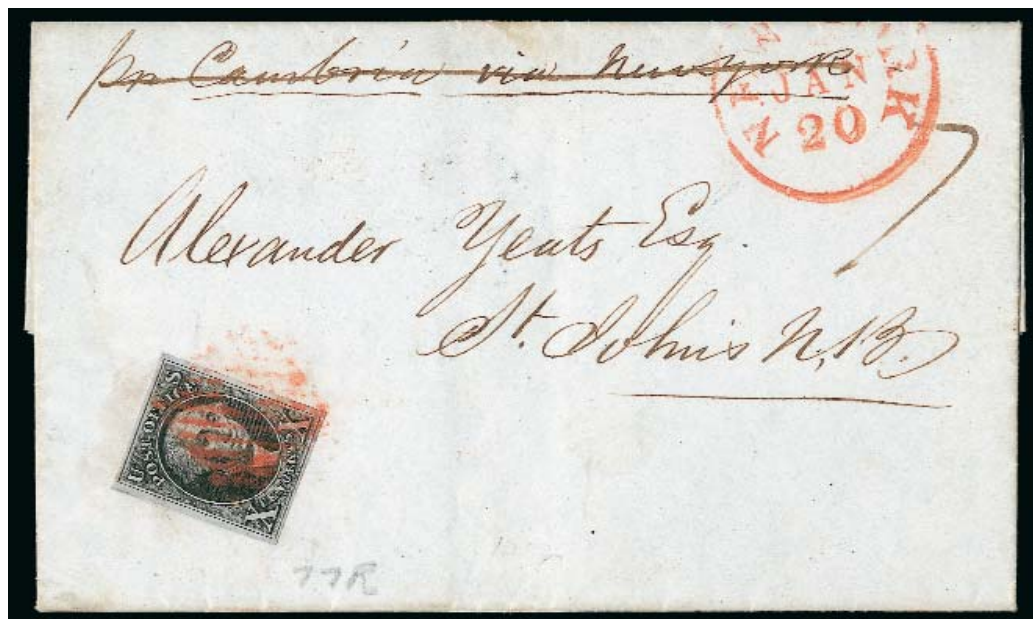 pr Cambria via New york
NEW YORK
JAN
20
7
Alexander Yeats Esq.
St. Johns N.B.
POST OFFICE
U S
X X
77R